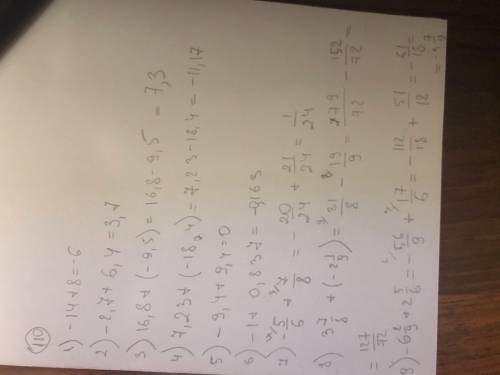 110
1) -14+8=-6
2) -2,7+6,4=3,7
3) 16,8+(-9,5)=16,8-9,5 = 7,3
4) 7,23+(-18,4)=7,23-18,4=-11,17
5) -9,4+9,4=0
6) -1+0,837=-0,163
7) -5/6+7/8=-20/24+21/24=1/24
8) 3 7/8+(-2 1/9)=31/8-19/9=279/72-152/72=
=127/72
9) -6 2/9+2 5/6=-56/9+17/6=-112/18+51/18=-61/18
=-3 7/9